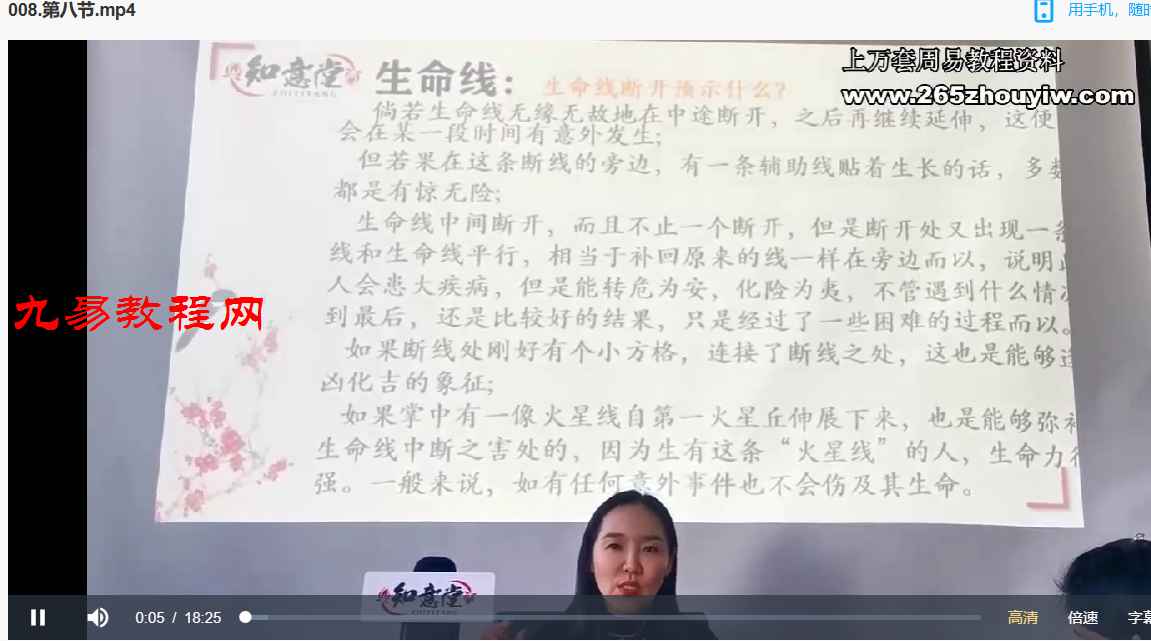 008.第八节.mp4
用手机，随时
上万套周易教程资料
www.265zhouyiw.com
知意堂
ZHIYITANG
生命线：
生命线断开预示什么?
倘若生命线无缘无故地在中途断开，之后再继续延伸，这便
会在某一段时间有意外发生;
但若果在这条断线的旁边，有一条辅助线贴着生长的话，多数
都是有惊无险;
生命线中间断开，而且不止一个断开，但是断开处又出现一条
线和生命线平行，相当于补回原来的线一样在旁边而以，说明此
人会患大疾病，但是能转危为安，化险为夷，不管遇到什么情况
到最后，还是比较好的结果，只是经过了一些困难的过程而以。
如果断线处刚好有个小方格，连接了断线之处，这也是能够逢
凶化吉的象征;
如果掌中有一像火星线自第一火星丘伸展下来，也是能够弥补
生命线中断之害处的，因为生有这条“火星线”的人，生命力很
强。一般来说，如有任何意外事件也不会伤及其生命。
九易教程网
知意堂
0:05 / 18:25
高清
倍速
字幕